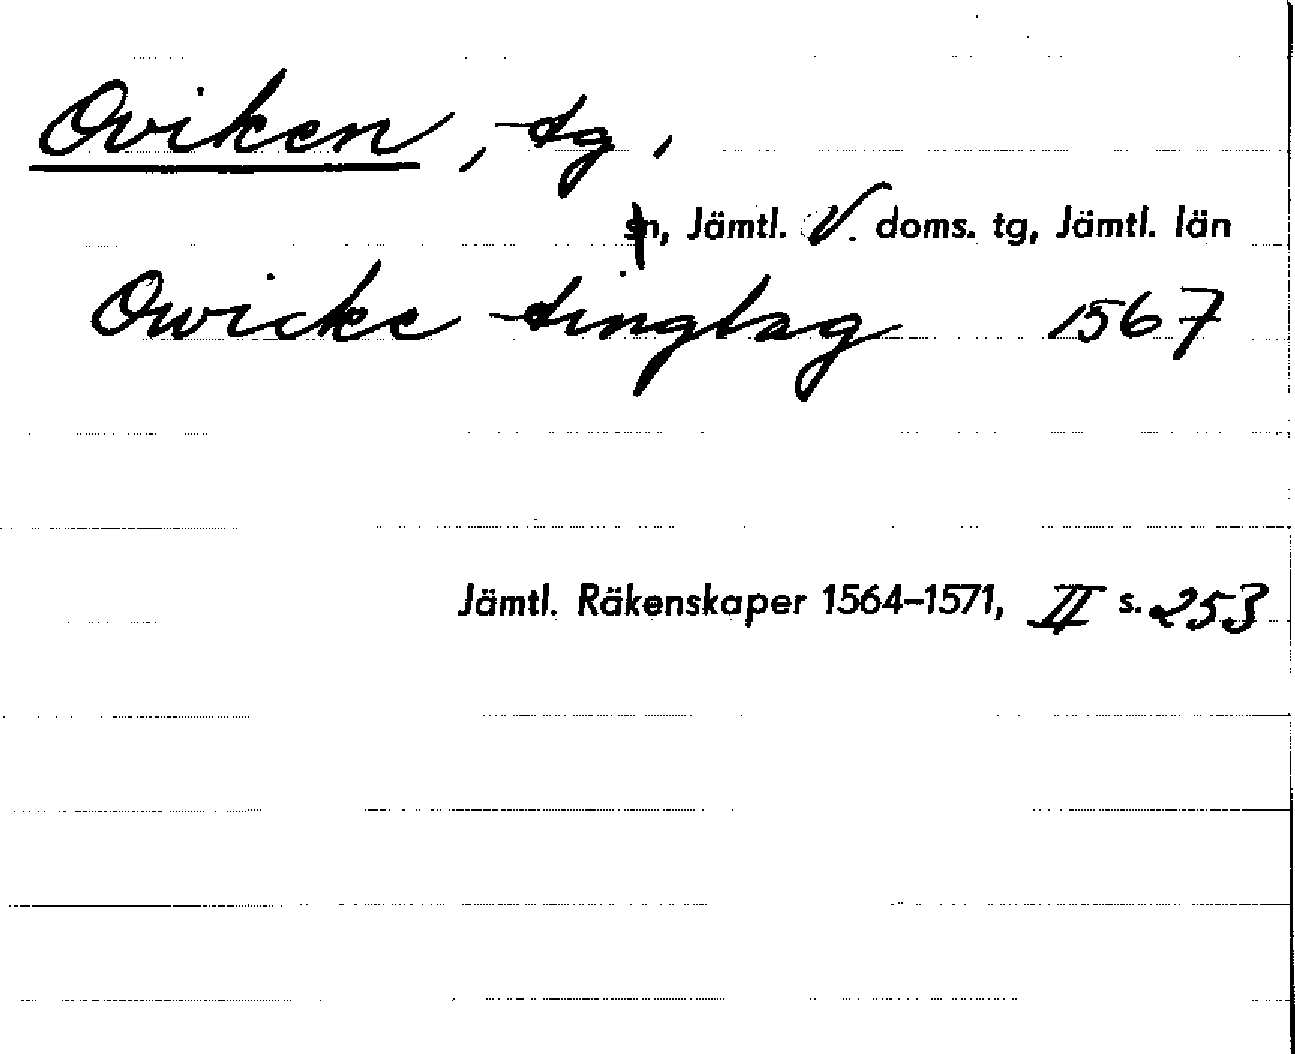 Oviken, tg,
sn, Jämtl. V. doms. tg, Jämtl. län
Owicke tinglag 1567
Jämtl. Räkenskaper 1564–1571, II s. 253